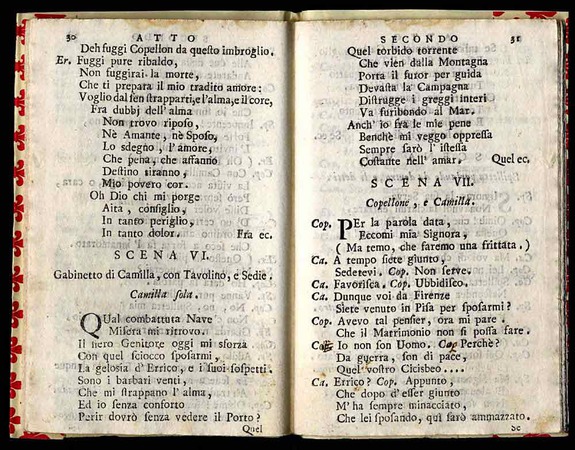 30
ATTO
Deh fuggi Copellon da questo imbroglio.
Er. Fuggi pure ribaldo,
Non fuggirai la morte,
Che ti prepara il mio tradito amore:
Voglio dal sen strapparti, e l'alma, e il core,
Fra dubbj dell' alma
Non trovo riposo,
Nè Amante, nè Sposo,
Lo sdegno, l' amore,
Che pena, che affanno
Destino tiranno,
Mio povero cor.
Oh Dio chi mi porge
Aita, consiglio,
In tanto periglio,
In tanto dolor. Fra ec.
SCENA VI.
Gabinetto di Camilla, con Tavolino, e Sedie.
Camilla sola.
QUal combattuta Nave
Misera mi ritrovo.
Il fiero Genitore oggi mi sforza
Con quel sciocco sposarmi,
La gelosia d' Errico, e i suoi sospetti.
Sono i barbari venti,
Che mi strappano l' alma,
Ed io senza conforto
Perir dovrò senza vedere il Porto?
Quel
SECONDO
31
Quel torbido torrente
Che vien dalla Montagna
Porta il furor per guida
Devasta la Campagna
Distrugge i greggi interi
Va furibondo al Mar.
Anch' io fra le mie pene
Benchè mi veggo oppressa
Sempre sarò l' istessa
Costante nell' amar. Quel ec.
SCENA VII.
Copellone, e Camilla.
Cop. PEr la parola data,
Eccomi mia Signora,
( Ma temo, che faremo una frittata. )
Ca. A tempo siete giunto,
Sedetevi. Cop. Non serve.
Ca. Favorisca. Cop. Ubbidisco.
Ca. Dunque voi da Firenze
Siete venuto in Pisa per sposarmi?
Cop. Avevo tal pensier, ora mi pare.
Che il Matrimonio non si possa fare.
Io non son Uomo. Cop Perchè?
Da guerra, son di pace,
Quel vostro Cicisbeo....
Ca. Errico? Cop. Appunto,
Che dopo d'esser giunto
M' ha sempre minacciato,
Che lei sposando, qui sarò ammazzato.
Se